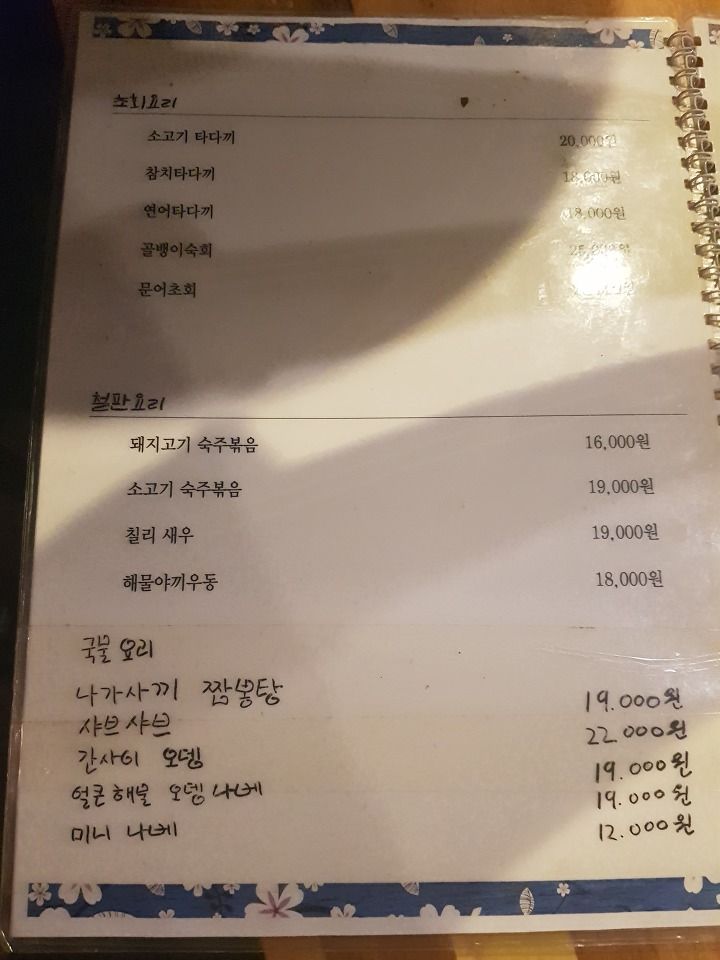 초회요리
소고기 타다끼 20,000원
참치타다끼 18,000원
연어타다끼 18,000원
골뱅이숙회
문어초회
철판요리
돼지고기 숙주볶음 16,000원
소고기 숙주볶음 19,000원
칠리 새우 19,000원
해물야끼우동 18,000원
국물 요리
나가사끼 짬뽕탕 19.000원
샤브샤브 22.000원
간사이 오뎅 19.000원
얼큰해물 오뎅나베 19.000원
미니 나베 12.000원